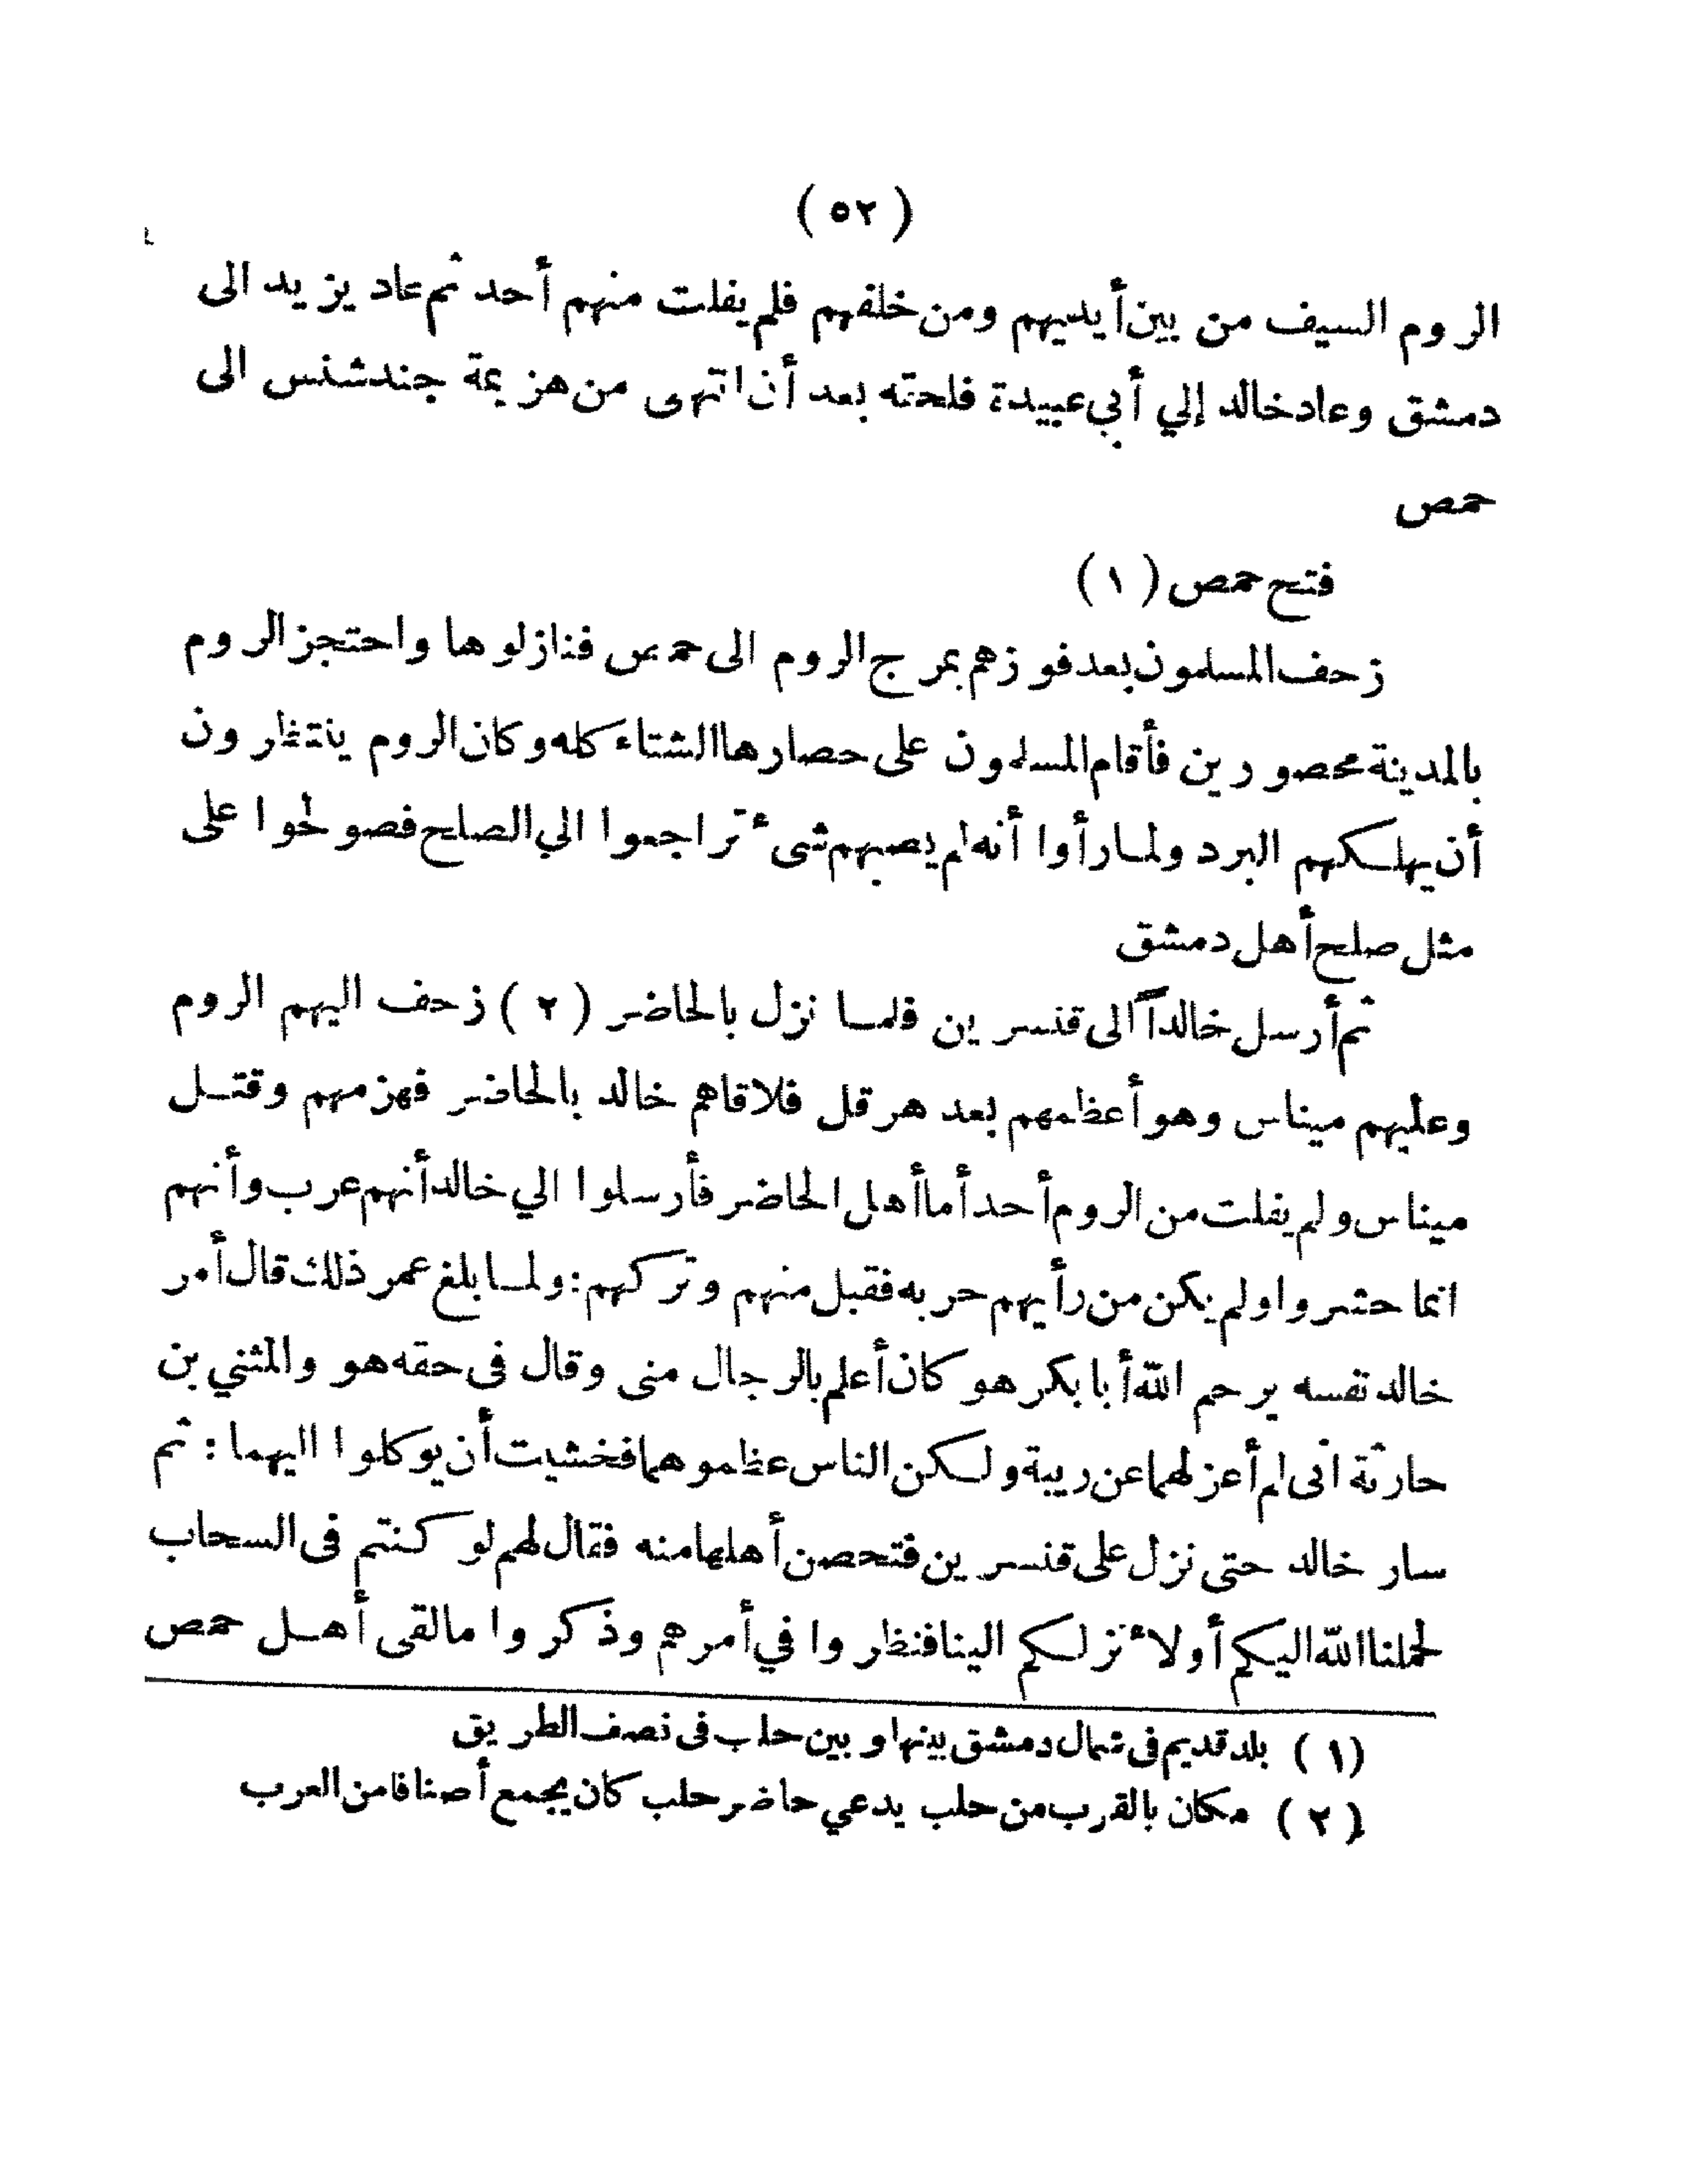 ( ٥٢ )
الروم السيف من بين أيديهم ومن خلفهم فلم يفلت منهم أحد ثم عاد يزيد الى
دمشق وعاد خالد إلي أبي عبيدة فلحقه بعد أن انتهى من هزيمة جند شنس الى
حمص
فتح حمص ( ١ )
زحف المسلمون بعد فوزهم بمرج الروم الى حمص فنازلوها واحتجز الروم
بالمدينة محصورين فأقام المسلمون على حصارها الشتاء كله وكان الروم ينتظرون
أن يهلكهم البرد ولما رأوا أنه لم يصبهم شىء تراجعوا الي الصلح فصولحوا على
مثل صلح أهل دمشق
ثم أرسل خالداً الى قنسرين فلما نزل بالحاضر ( ٢ ) زحف اليهم الروم
وعليهم ميناس وهو أعظمهم بعد هرقل فلاقاهم خالد بالحاضر فهزمهم وقتل
ميناس ولم يفلت من الروم أحد أما أهل الحاضر فأرسلوا الي خالد أنهم عرب وأنهم
انما حشروا ولم يكن من رأيهم حربه فقبل منهم وتركهم : ولما بلغ عمر ذلك قال أمر
خالد نفسه يرحم الله أبا بكر هو كان أعلم بالرجال منى وقال فى حقه هو والمثني بن
حارثة انى لم أعزلهما عن ريبة ولكن الناس عظموهما فخشيت أن يوكلوا اليهما : ثم
سار خالد حتى نزل على قنسرين فتحصن أهلها منه فقال لهم لو كنتم فى السحاب
لحملنا الله اليكم أو لأنزلكم الينا فنظروا في أمرهم وذكروا ما لقى أهل حمص
( ١ ) بلد قديم فى شمال دمشق بينها وبين حلب فى نصف الطريق
( ٢ ) مكان بالقرب من حلب يدعي حاضر حلب كان يجمع أصنافا من العرب